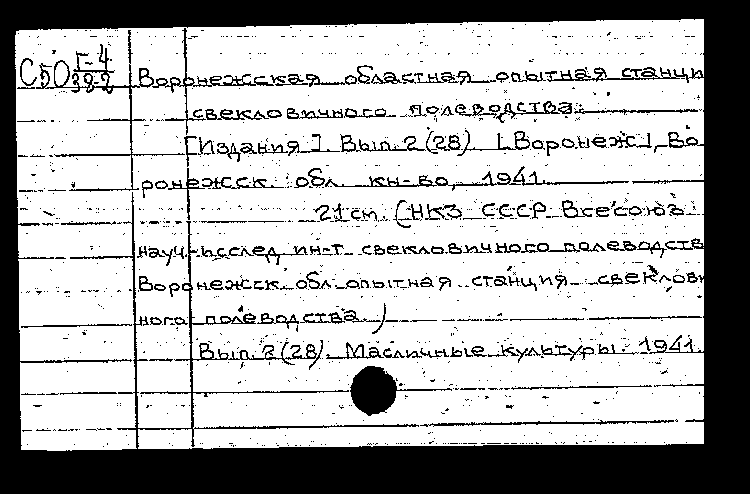 С50 Г-4
382
Воронежсская областная опытная станци
свекловичного полеводства.
[Издания]. Вып. 2 (28) [Воронеж], Во
ронежск. обл. кн-во, 1941.
21 см. (НКЗ СССР Всесоюз.
науч-исслед. ин-т. свекловичного полеводств
Воронежск. обл. опытная станция свеклови
ного полеводства.)
Вып. 2 (28). Масличные культуры. 1941.